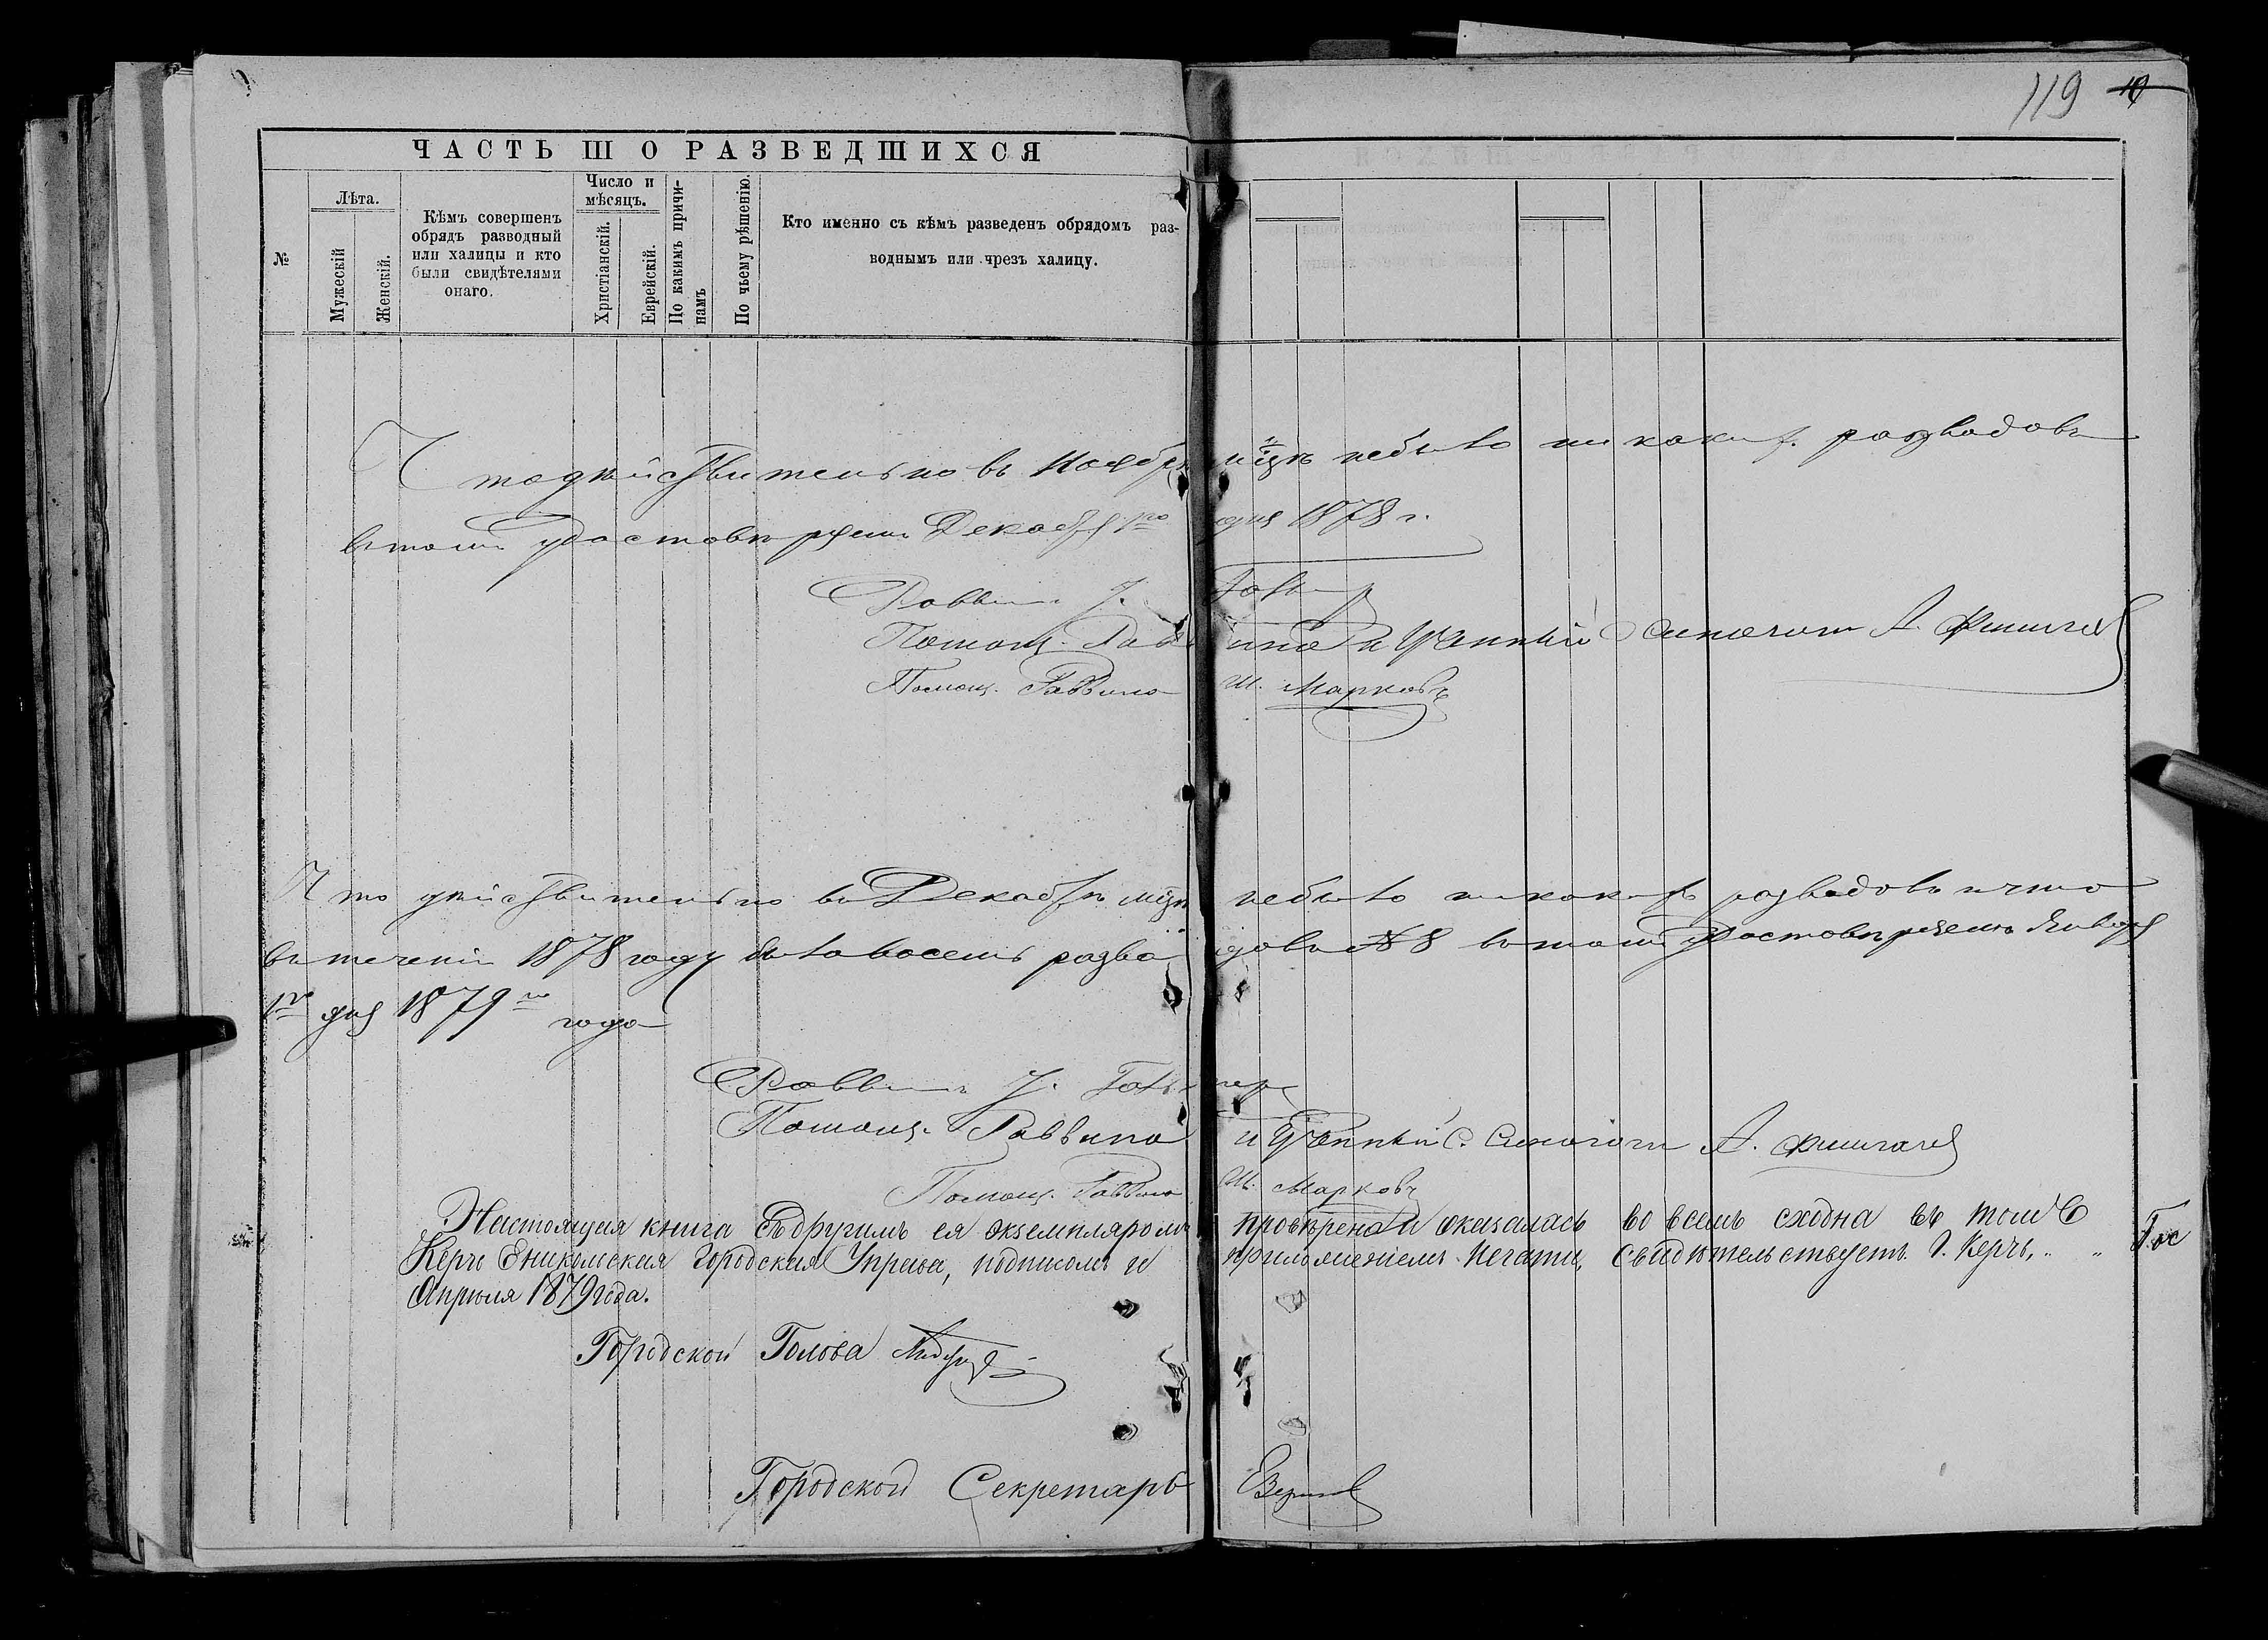 119 19
ЧАСТЬ III О РАЗВЕДШИХСЯ
№
Лѣта.
Мужескій
Женскій.
Кѣмъ совершенъ
обрядъ разводный
или халицы и кто
были свидѣтелями
онаго.
Число и
мѣсяцъ.
Христіанскій.
Еврейскій.
По какимъ причи-
намъ
По чьему рѣшенію.
Кто именно съ кѣмъ разведенъ обрядомъ раз-
воднымъ или чрезъ халицу.
Что дѣйствительно въ Ноябрѣ м-цѣ небыло никакихъ разводовъ
въ томъ удостовѣряемъ Декабря 1го дня 1878 г.
Раввинъ
Помощ. Раввина и Ученый Синагоги А.
Помощ. Раввина Ш. Марковъ
Что дѣйствительно въ Декабрѣ мцѣ небыло никакихъ разводовъ и что
въ теченіи 1878 году было восемь разводовъ № 8 въ томъ удостовѣряемъ Января
1го дня 1879го года
Раввинъ
Помощ. Раввина и Ученый С. Синагоги А.
Помощ. Раввина Ш. Марковъ
Настоящая книга съ другимъ ея экземпляромъ провѣрена и оказалась во всемъ сходна въ томъ
Керчь Еникольская Городская Управа, подписомъ и приложеніемъ печати, свидѣтельствуетъ. Г. Керчь, „ „
Апрѣля 1879 года.
Городской Голова
Городской Секретарь